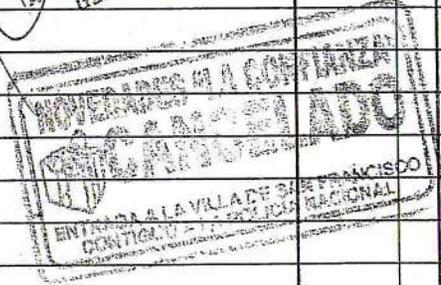 NOVEDADES "LA CONFIANZA"
CANCELADO
ENTRADA A LA VILLA DE SAN FRANCISCO
CONTIGUO A LA POLICIA NACIONAL